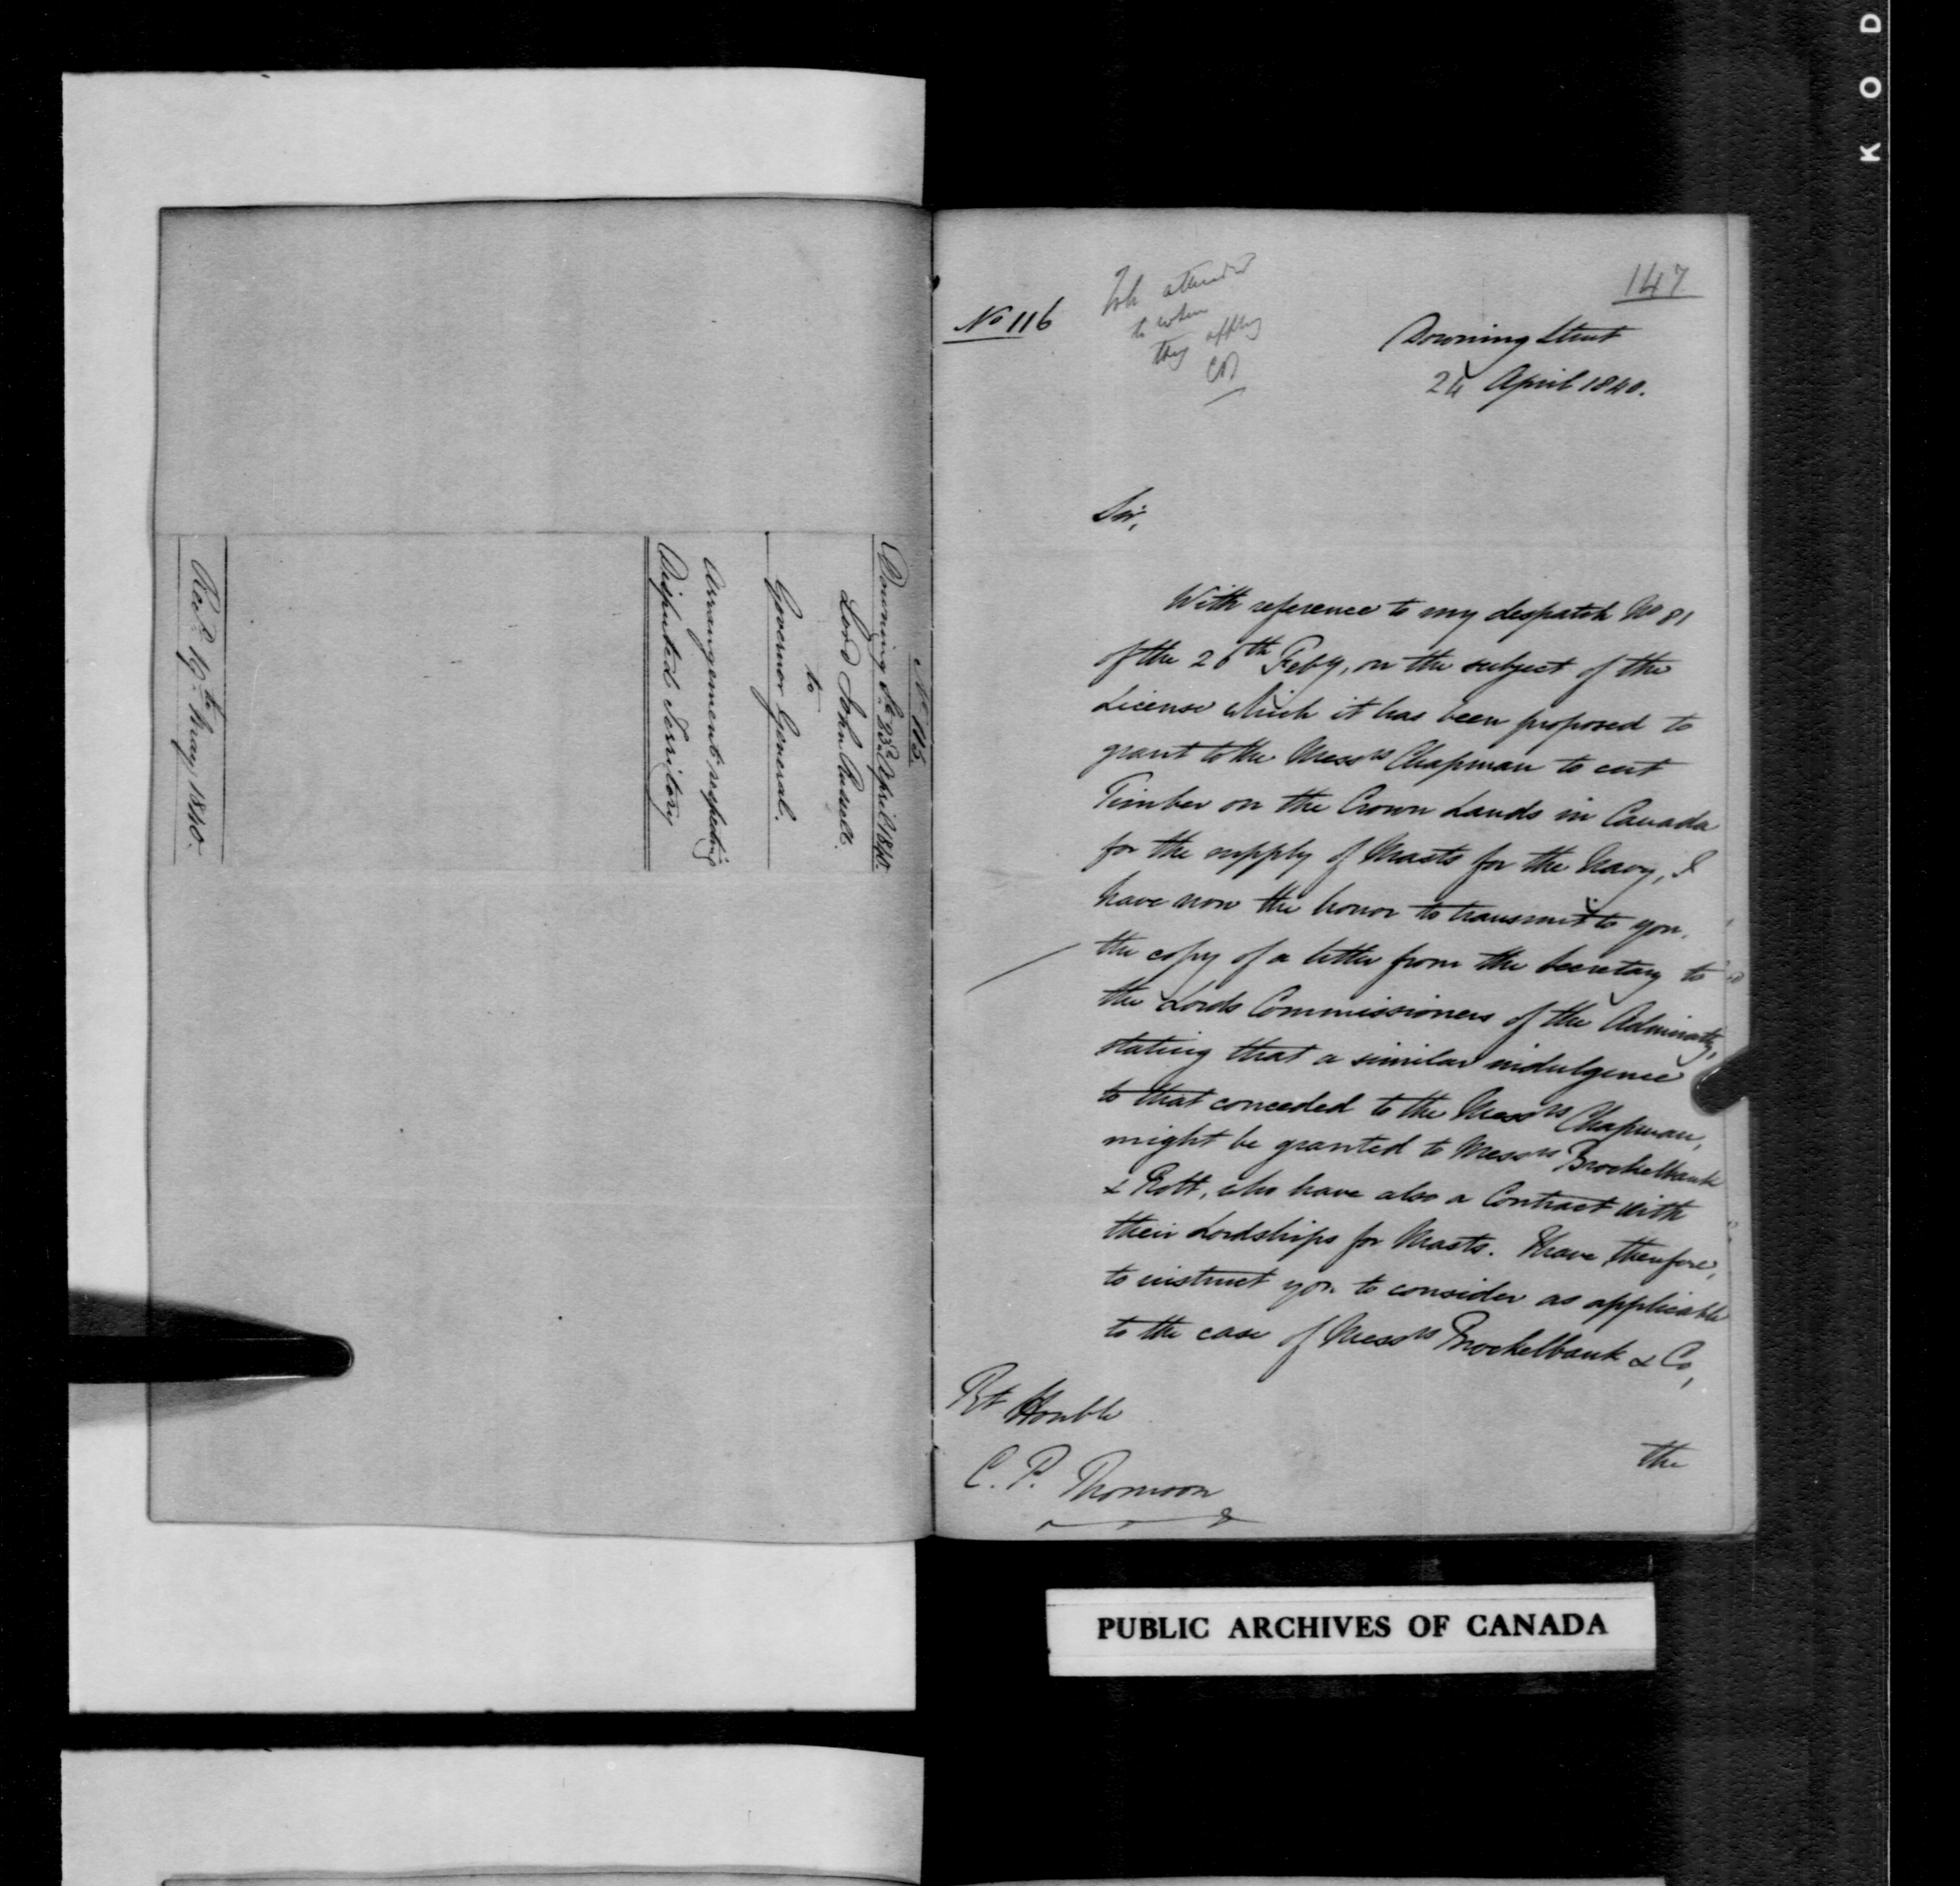 No 115
Downing St. 23d April 1840.
Lord John Russell.
to
Governor General.
Arrangements respecting
Disputed Territory
Recd. 19th May 1840.
147
No 116
to when
they apply
Downing Street
24 April 1840.
Sir,
With reference to my despatch No 81
of the 26th Feby, on the subject of the
License which it has been proposed to
grant to the Messrs Chapman to cut
Timber on the Crown Lands in Canada
for the supply of Masts for the Navy, I
have now the honor to transmit to you,
the copy of a letter from the Secretary to
the Lords Commissioners of the Admiralty,
stating that a similar indulgence
to that conceded to the Messrs Chapman,
might be granted to Messrs Brockelbank
& Rolt, who have also a Contract with
their Lordships for Masts. I have therefore,
to instruct you to consider as applicable
to the case of Messrs Brockelbank & Co,
Rt Honble
C. P. Thomson
the
PUBLIC ARCHIVES OF CANADA
K O D